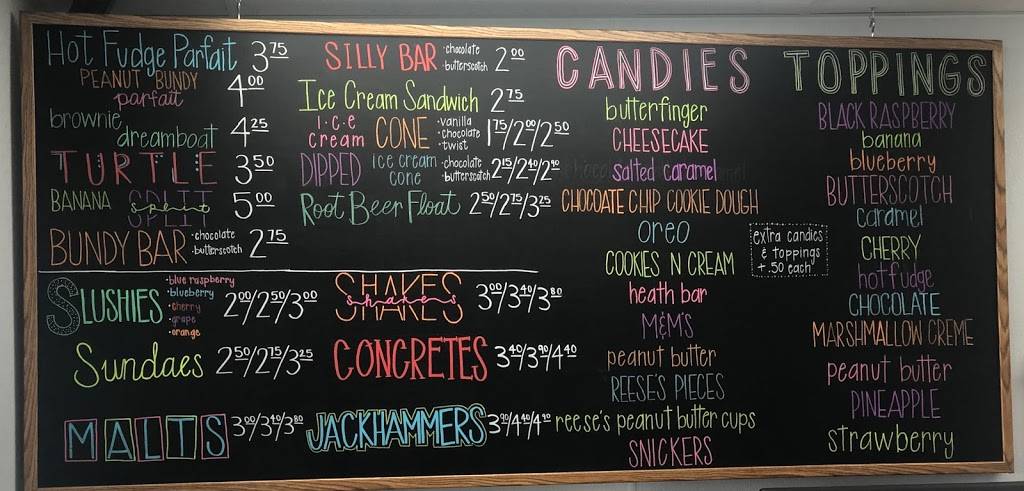 Hot Fudge Parfait 3.75
PEANUT BUNDY
parfait 4.00
brownie
dreamboat 4.25
TURTLE 3.50
BANANA SPLIT 5.00
BUNDY BAR •chocolate
•butterscotch 2.75
SILLY BAR •chocolate
•butterscotch 2.00
Ice Cream Sandwich 2.75
ice
cream CONE •vanilla
•chocolate
•twist 1.75/2.00/2.50
DIPPED ice cream
cone •chocolate
•butterscotch 2.15/2.40/2.90
Root Beer Float 2.50/2.75/3.25
SLUSHIES •blue raspberry
•blueberry
•cherry
•grape
•orange 2.00/2.50/3.00
Sundaes 2.50/2.75/3.25
MALTS 3.00/3.40/3.80
SHAKES
shakes 3.00/3.40/3.80
CONCRETES 3.40/3.90/4.40
JACKHAMMERS 3.90/4.40/4.90
CANDIES
butterfinger
CHEESECAKE
salted caramel
CHOCOLATE CHIP COOKIE DOUGH
oreo
COOKIES N CREAM
heath bar
M&M'S
peanut butter
REESE'S PIECES
reese's peanut butter cups
SNICKERS
extra candies
& toppings
+.50 each
TOPPINGS
BLACK RASPBERRY
banana
blueberry
BUTTERSCOTCH
caramel
CHERRY
hot fudge
CHOCOLATE
MARSHMALLOW CREME
peanut butter
PINEAPPLE
strawberry